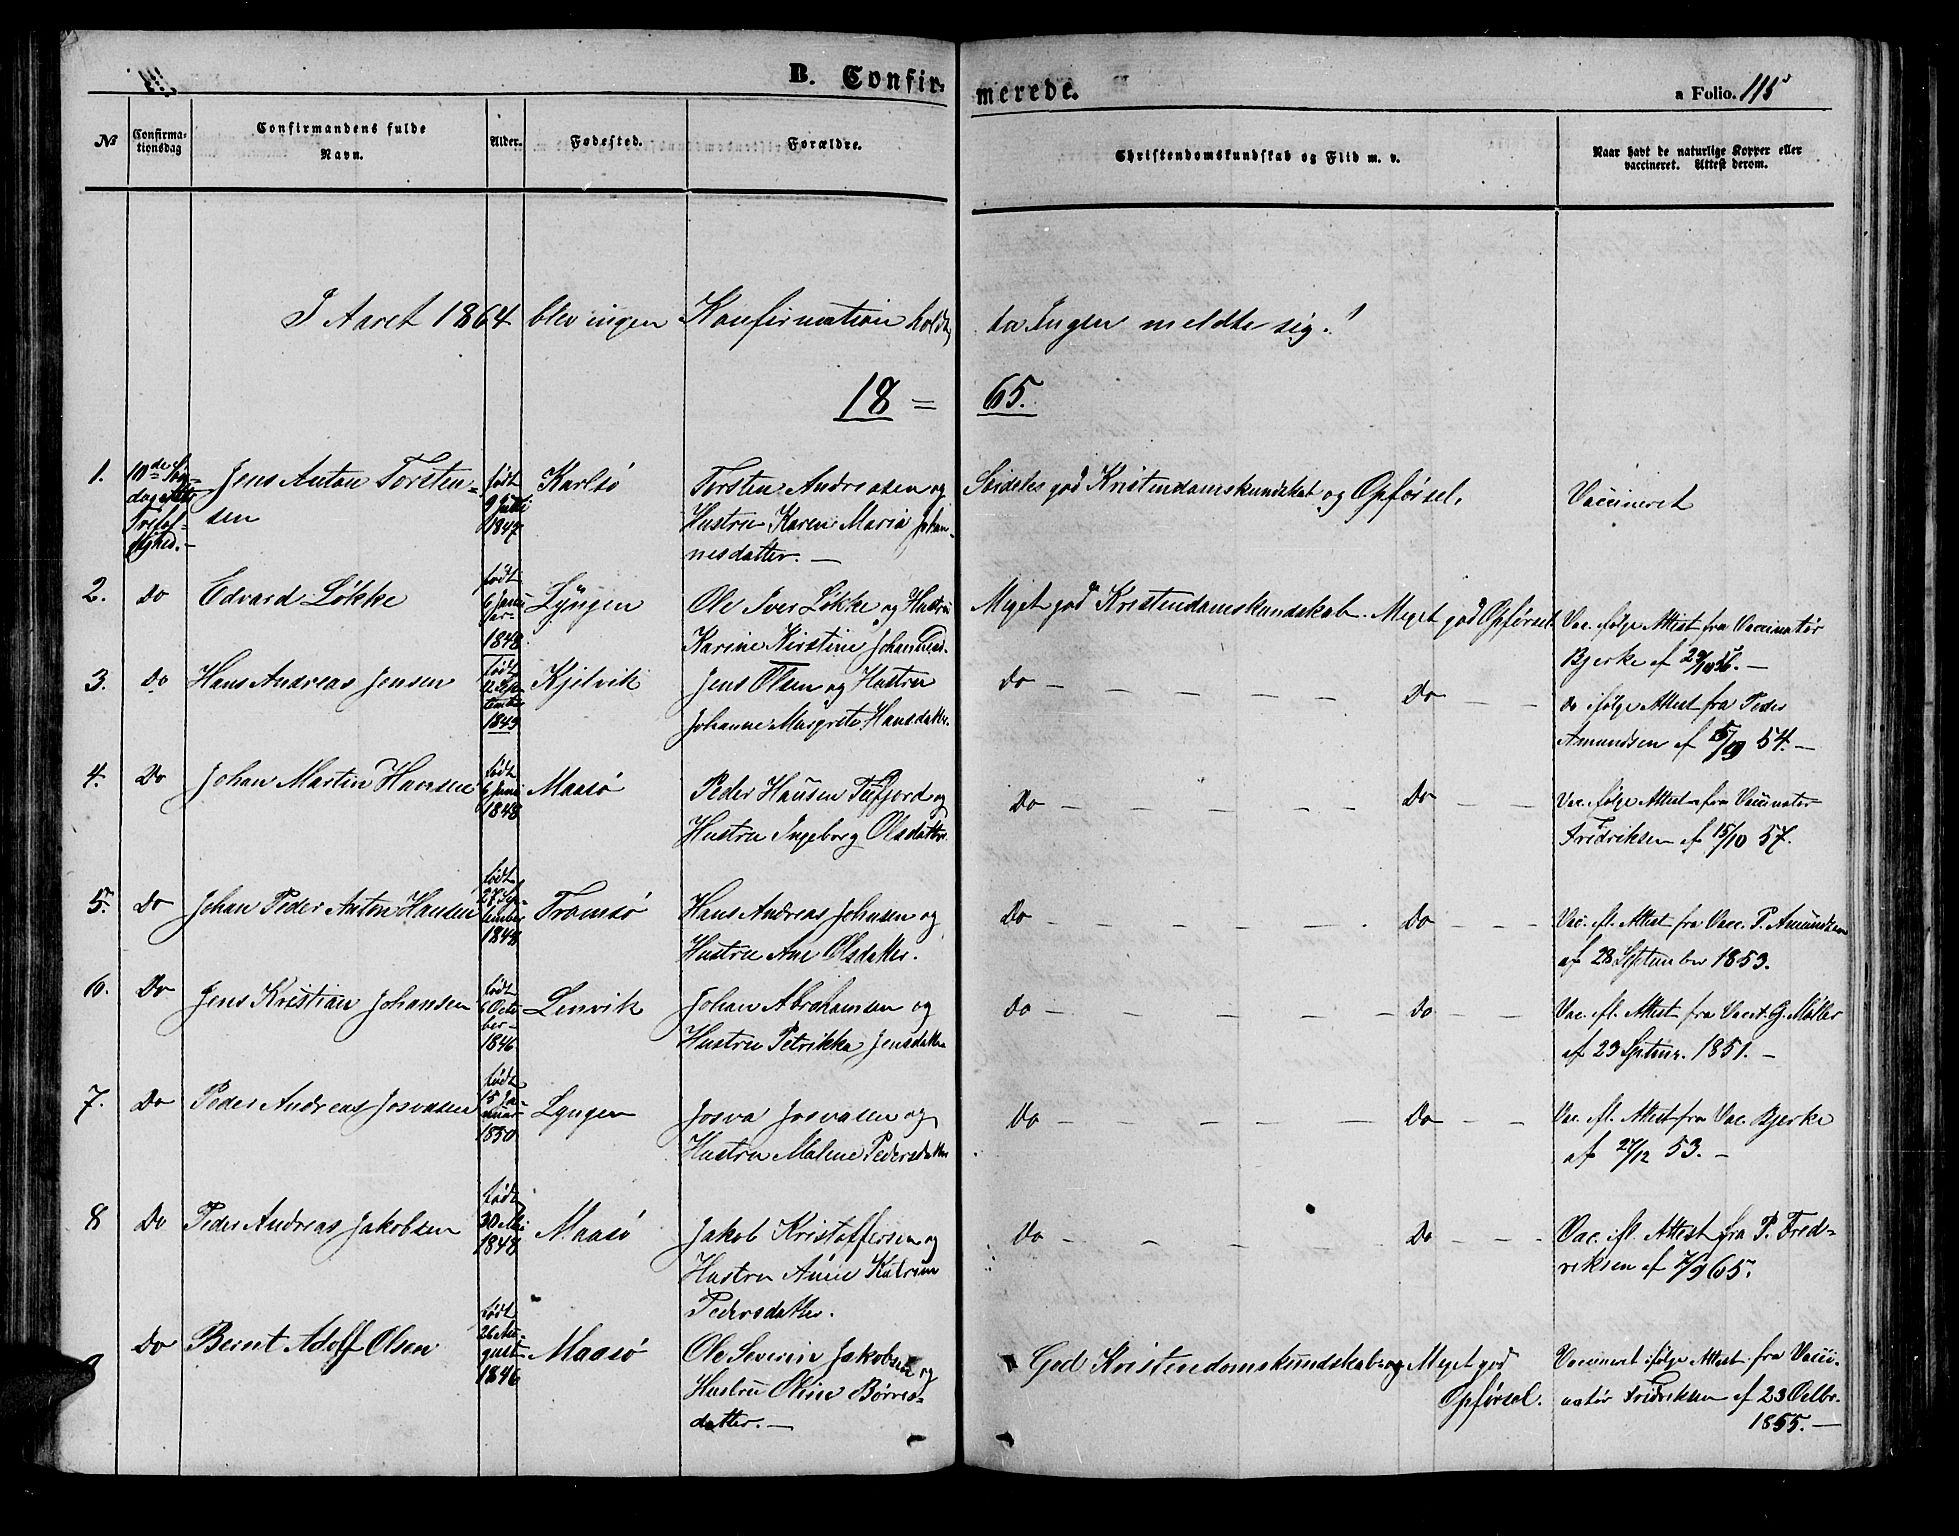 B. Confirmerede.
a Folio. 115
No
Confirmationsdag
Confirmandens fulde Navn.
Alder.
Fødested.
Forældre.
Christendomskundskab og Flid m. v.
Naar havt de naturlige Kopper eller vaccineret. Attest derom.
I Aaret 1864 blev ingen Konfirmation holdt, da Ingen meldte sig!
18 = 65.
1. 10de Søndag efter Trefoldighed.- Jens Anton Torstensen født 9 Juli 1847 Karlsø Torsten Andreasen og Hustru Karen Maria Johannesdatter. — Særdeles god Kristendomskundskab og Opførsel. Vaccineret
2. Do Edvard Løkke født 6 Januar 1848 Lyngen Ole Iver Løkke og Hustru Karine Kirstine Meget god Kristendomskundskab. Meget god Opførsel Vac. ifølge Attest fra Vaccinatør Bjerke af
3. Do Hans Andreas Jensen født 12 September 1849 Kjelvik Jens Olsen og Hustru Johanne Margrete Hansdatter. Do Do Do ifølge Attest fra Peder Amundsen af 54. —
4. Do Johan Martin Hansen født 6 Juni 1848 Maasø Peder Hansen Tufjord og Hustru Ingeborg Olsdatter Do Do Vac. ifølge Attest fra Vaccinatør Fredriksen af 15/10 57.
5. Do Johan Peder Anton Hansen født 27 September 1848 Tromsø Hans Andreas Johnsen og Hustru Ane Olsdatter. Do Do Vac. ifl. Attest fra Vacc. P. Amundsen af 28 September 1853.
6. Do Jens Kristian Johansen født 6 October 1846 Lenvik Johan Abrahamsen og Hustru Petrikka Jensdatter Do Do Vac. ifl. Attest fra Vacc. G. Møller af 23 Septmr. 1851. —
7. Do Peder Andreas Josvasen født 15 Januar 1850 Lyngen Josva Josvasen og Hustru Malene Pedersdatter Do Do Vac. ifl. Attest fra Vac. Bjerke af 27/12 53. —
8 Do Peder Andreas Jakobsen født 30 Mai 1848 Maasø Jakob Kristoffersen og Hustru Anne Katrine Pedersdatter. Do Do Vac. ifl. Attest fra P. Fredriksen af 7/9 65.
9 Do Bernt Adolf Olsen født 26 August 1846 Maasø Ole Severin Jakobsen og Hustru Oline Børresdatter. — God Kristendomskundskab og Meget god Opførsel. Vaccineret ifølge Attest fra Vaccinatør Fredriksen af 23 Octbr. 1855. —